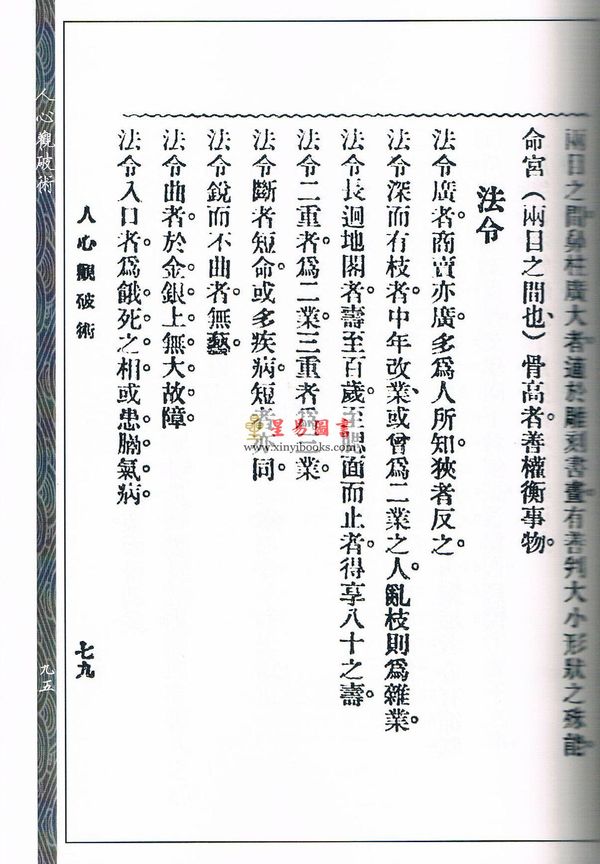 兩目之間鼻柱廣大者適於雕刻書畫有善判大小形狀之殊能。
命宮（兩目之間也）骨高者善權衡事物。
法令
法令廣者商賣亦廣。多爲人所知狹者反之。
法令深而有枝者。中年改業、或曾爲二業之人。亂枝則爲雜業。
法令長迴地閣者。壽至百歲。至腮面而止者。得享八十之壽。
法令二重者。爲二業三重者爲三業
法令斷者短命或多疾病短者亦同
法令銳而不曲者。無藝。
法令曲者。於金銀上無大故障。
法令入口者。爲餓死之相或患膈氣病。
人心觀破術
七九
人心觀破術
九五
星易圖書
www.xinyibooks.com